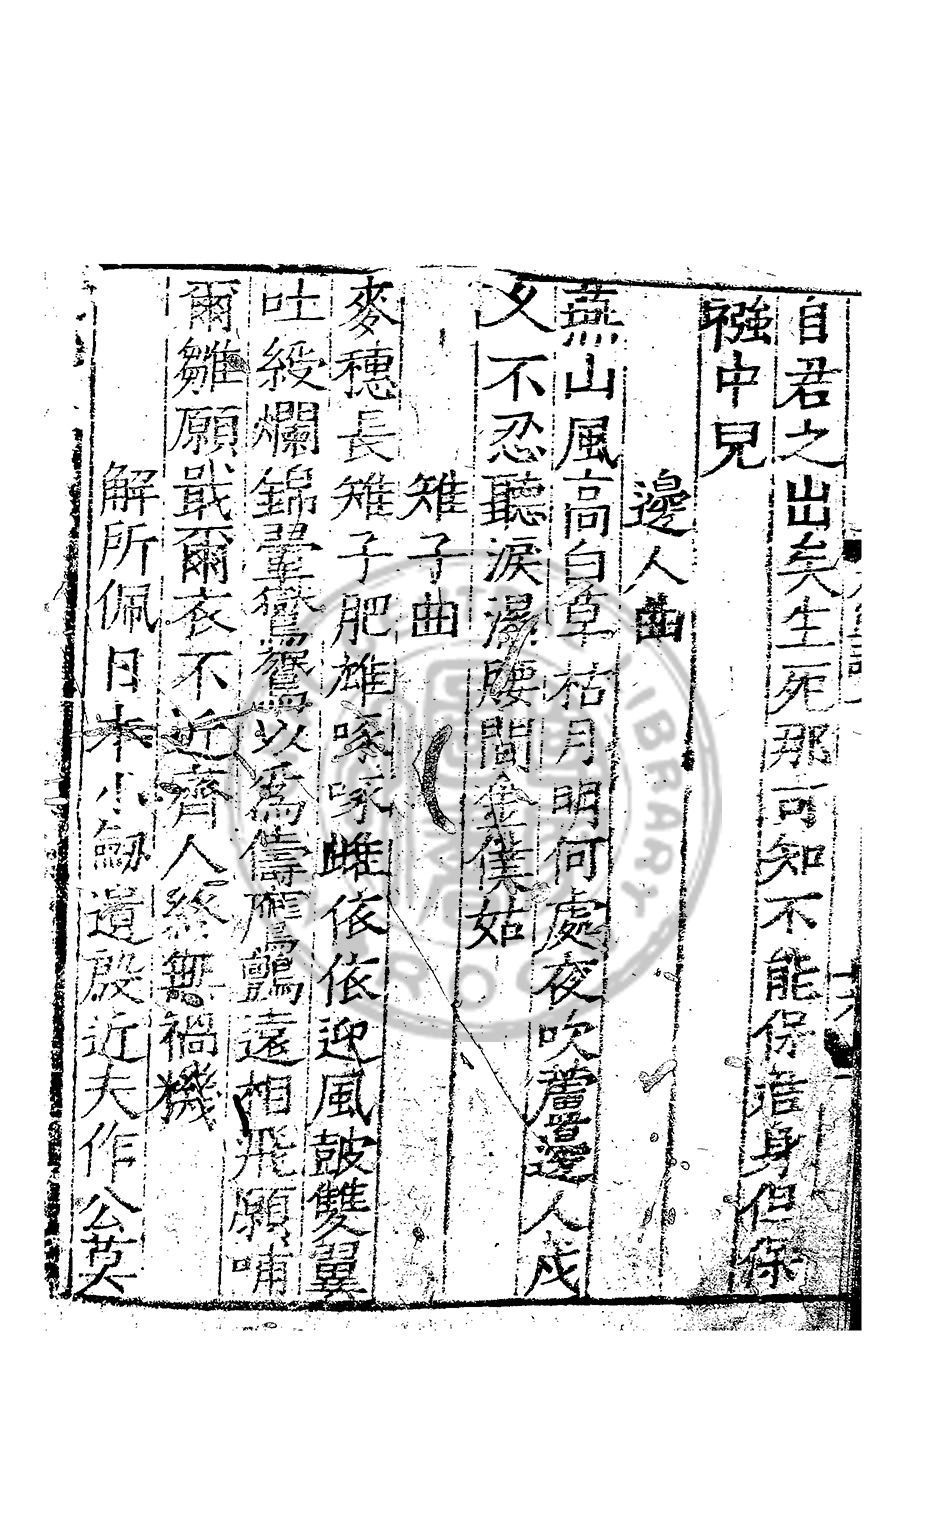 自君之出矣生死那可知不能保君身但保
襁中兒
邊人曲
燕山風高白草枯月明何處夜吹蘆邊人戍
久不忍聽淚濕腰間金僕姑
雉子曲
麥穗長雉子肥雄啄啄雌依依迎風鼓雙翼
吐綬爛錦翬鴛鴦以爲儔鷹鸇遠相飛願哺
爾雛願戢爾衣不近齊人終無禍機
解所佩日本小劒遺殷近夫作公莫